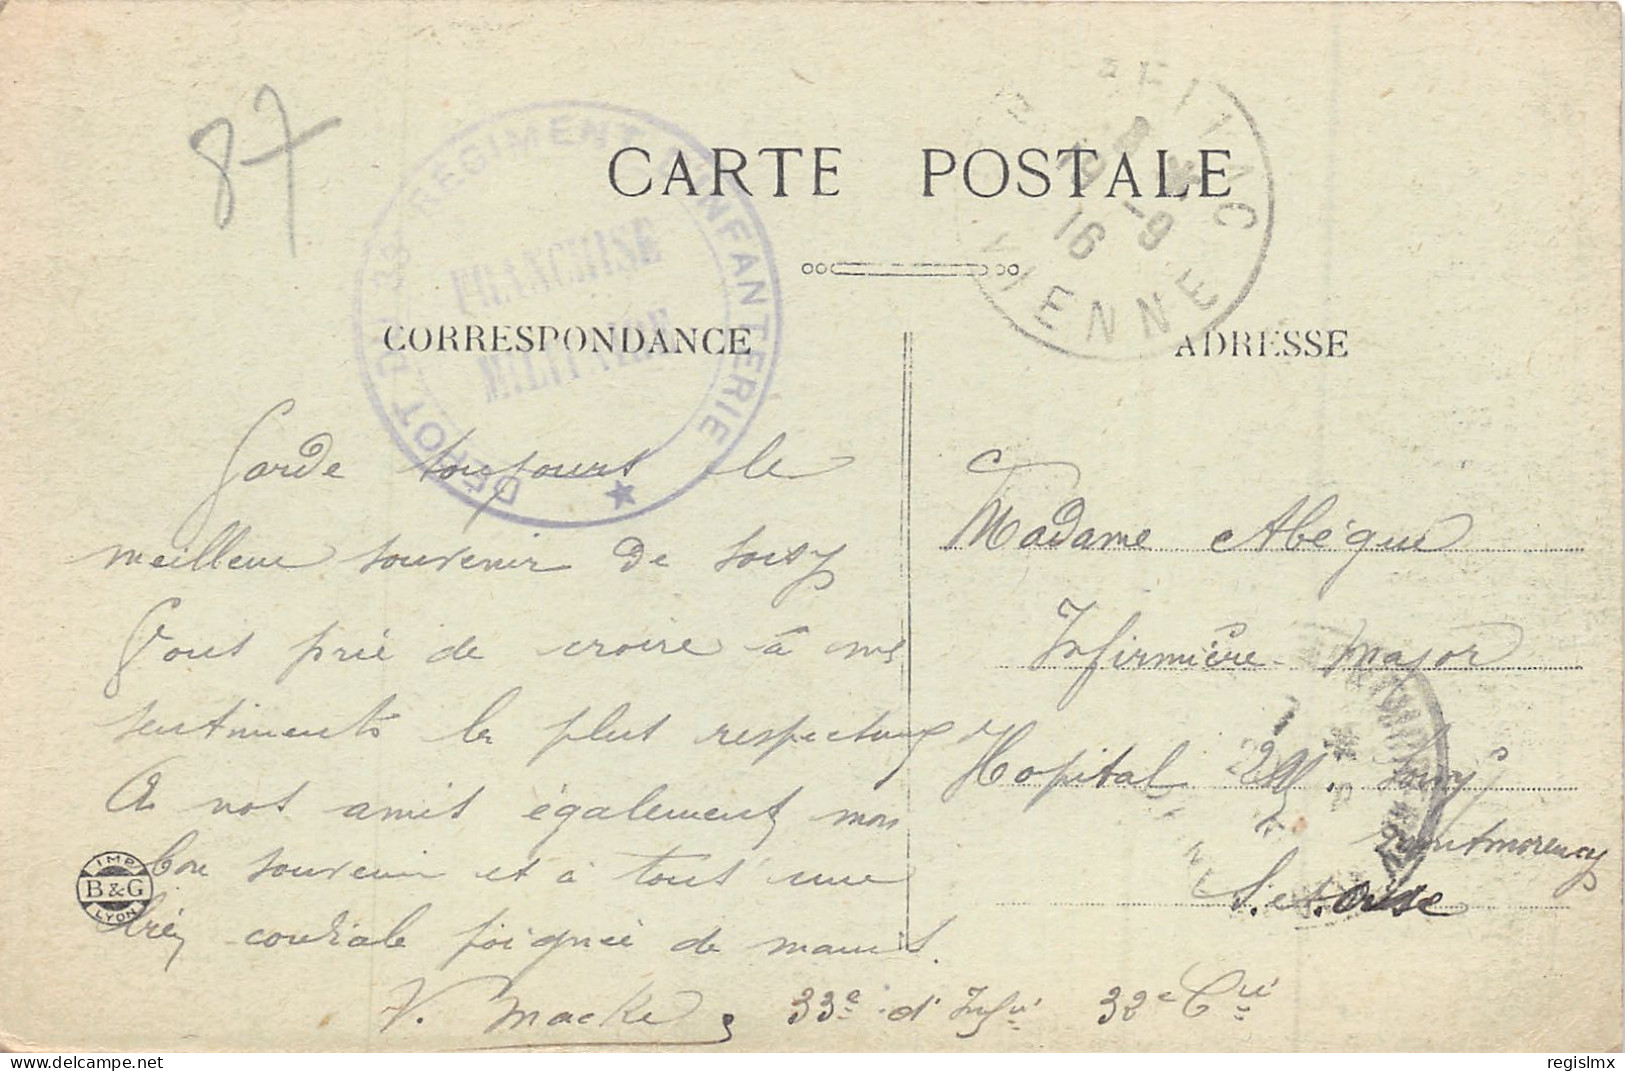 87
CARTE POSTALE
DÉPÔT DU 33 RÉGIMENT D'INFANTERIE
FRANCHISE
MILITAIRE
VIENNE
16 -9
CORRESPONDANCE
ADRESSE
Garde toujours le
meilleur souvenir de Soisy
Vous prié de croire à mes
sentiments les plus respectueux
A nos amis également mon
bon souvenir et à tous une
très cordiale poignée de mains.
V. Macke, 33e d'Infie 32e Cie
Madame Abégué
Infirmière major
Hopital Soisy
s/s Montmorency
S. et. Oise
IMP
B & G
LYON
regislmx